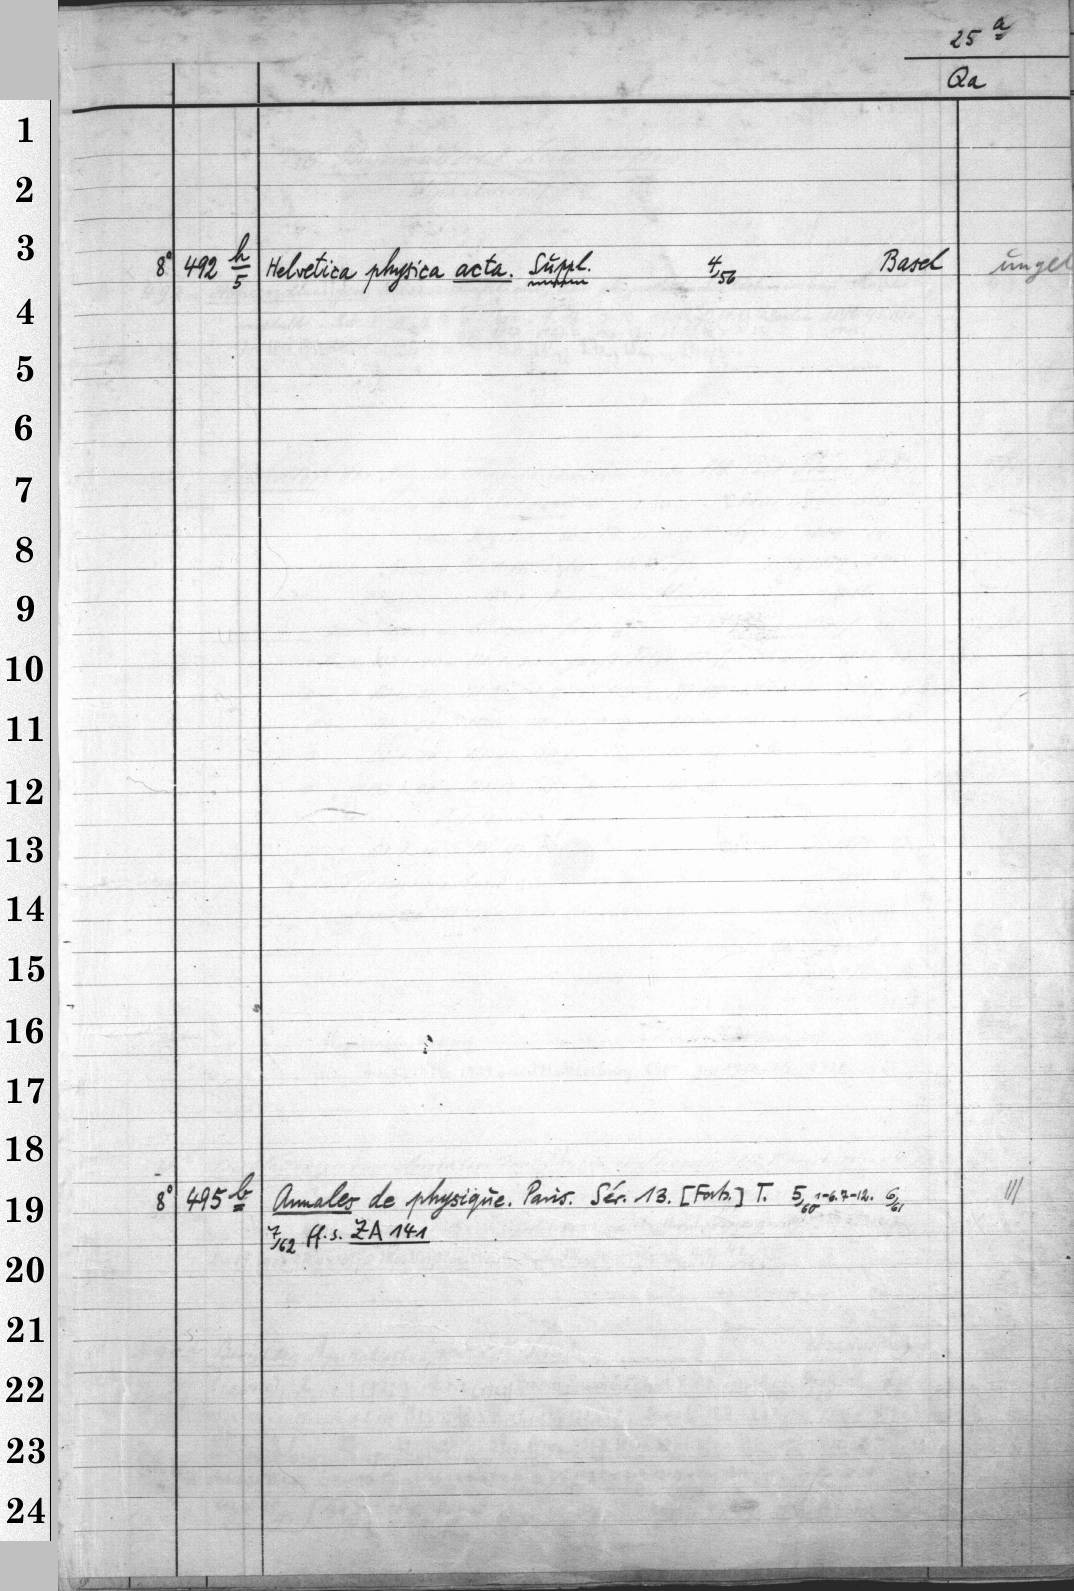 25 a
Qa
1
2
3
8° 492 h/5 Helvetica physica acta. Suppl. 4/56 Basel ungeb
4
5
6
7
8
9
10
11
12
13
14
15
16
17
18
19
8° 495 b Annales de physique. Paris. Sér. 13. [Forts.] T. 5/60 1-6.7-12. 6/61
7/62 ff. s. ZA 141
20
21
22
23
24